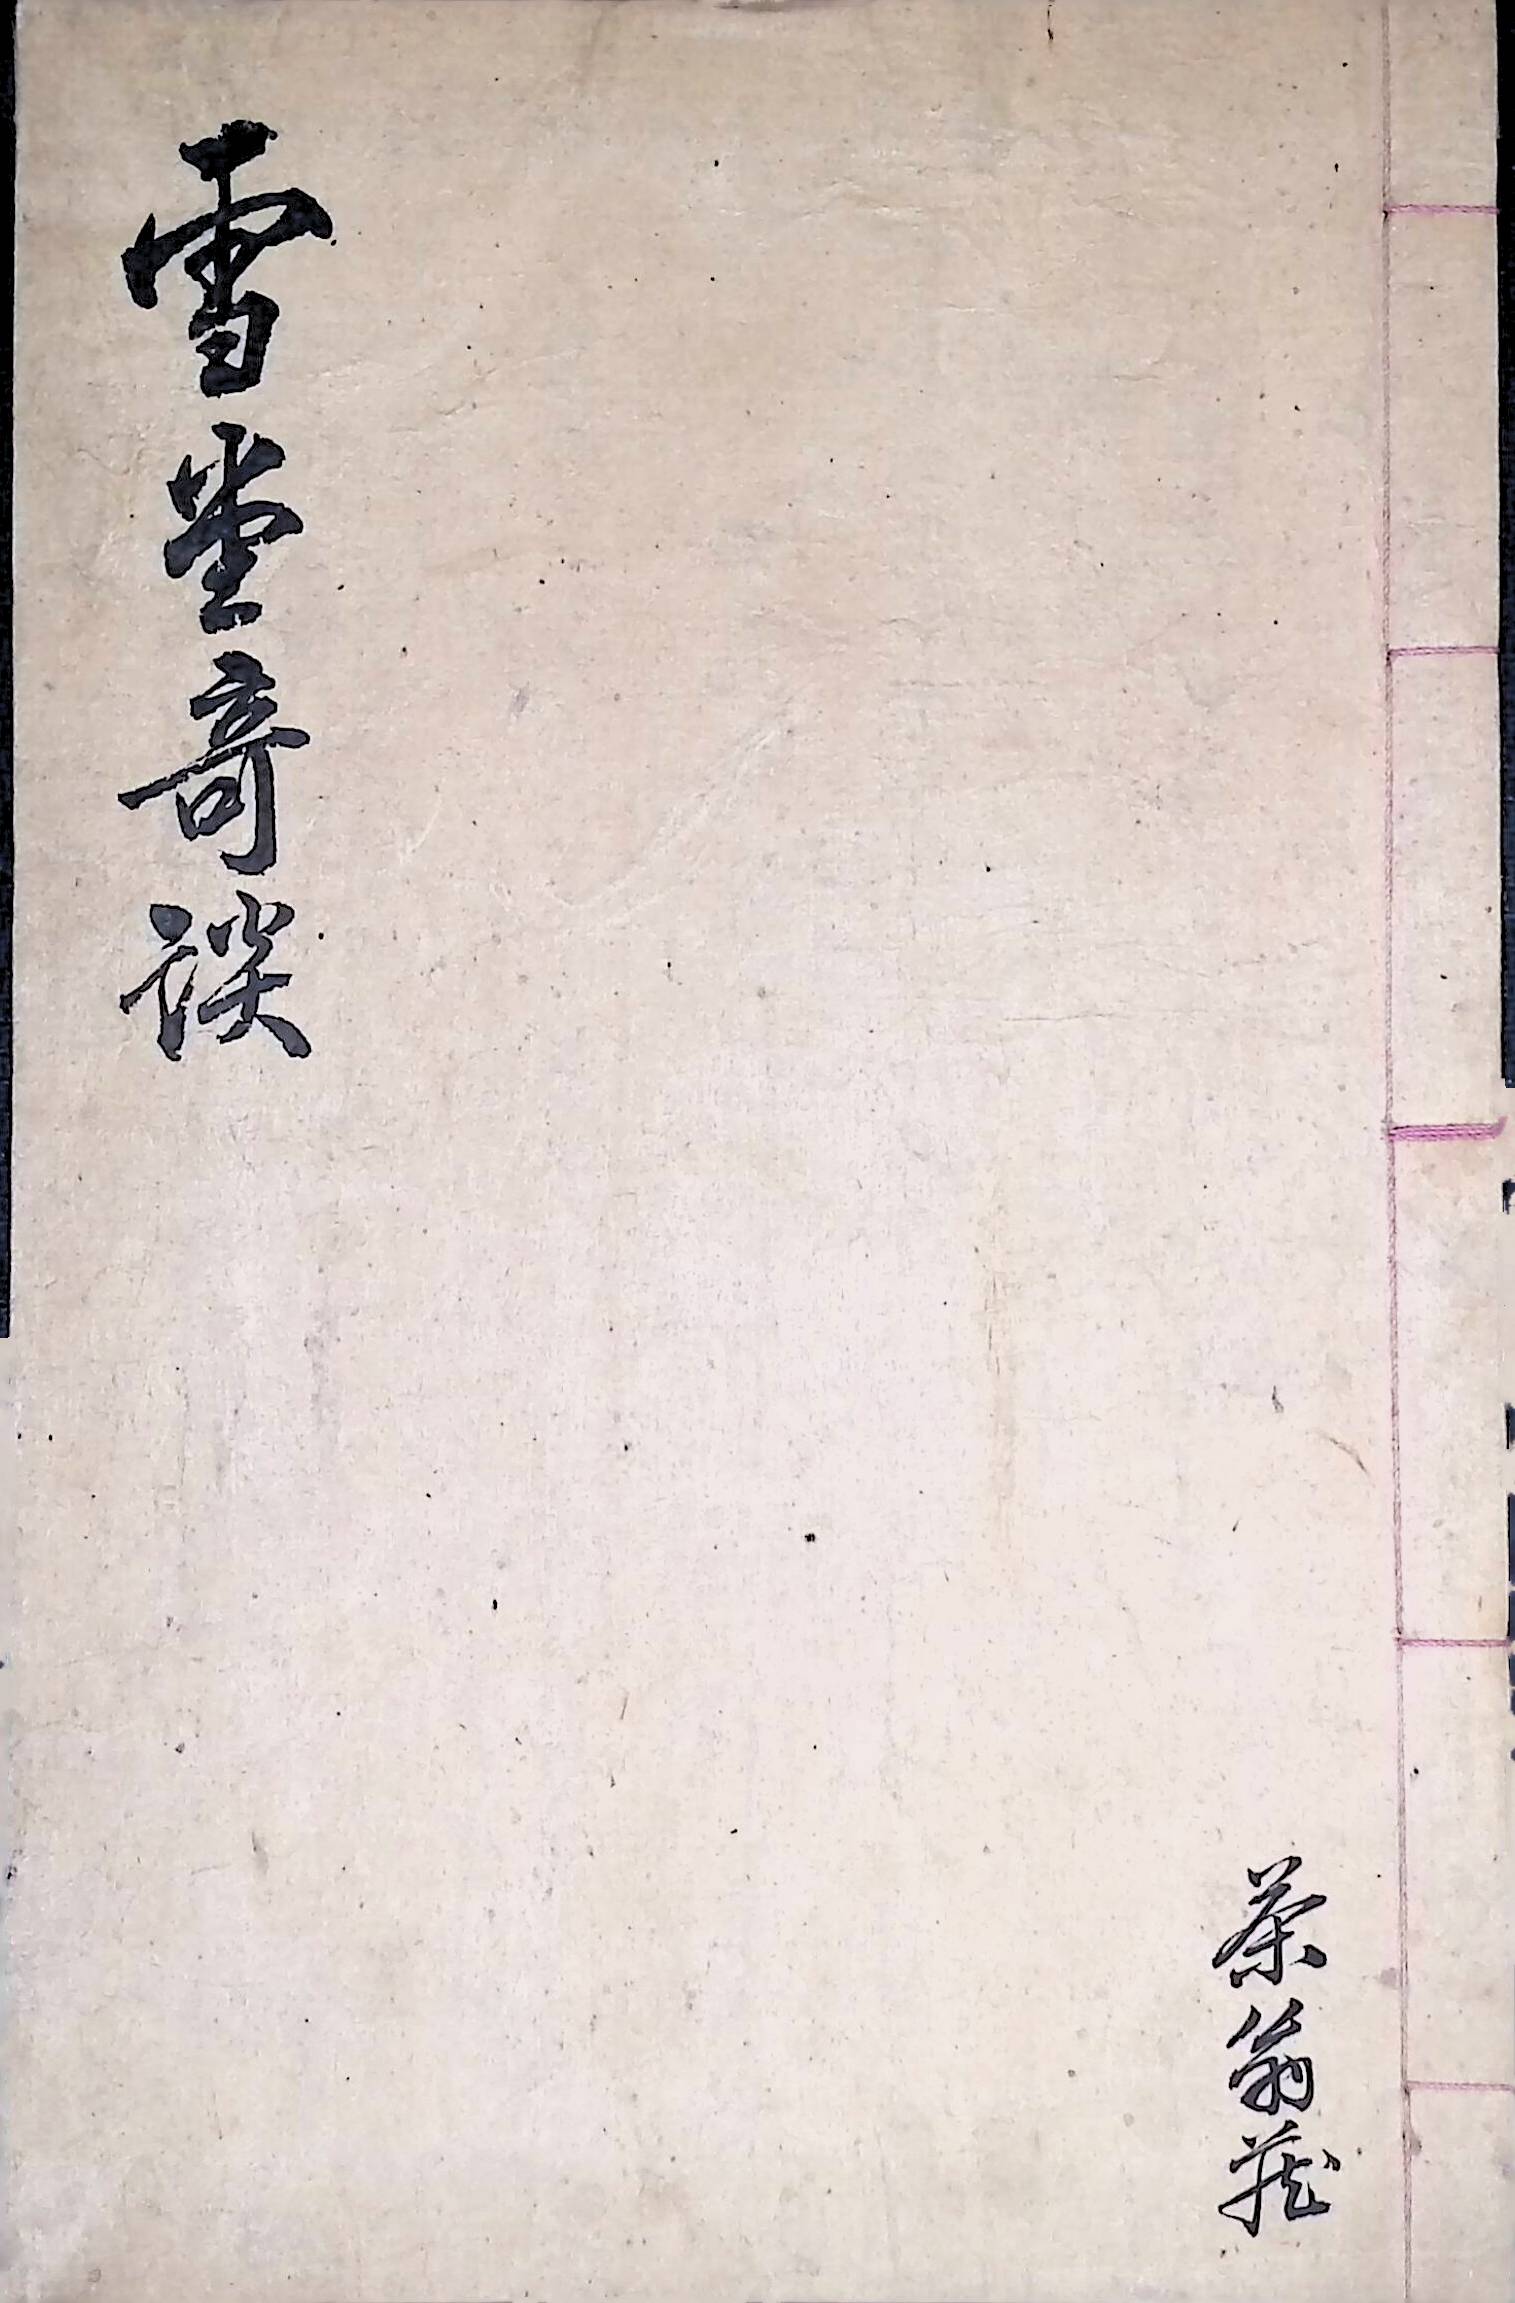 雪堂奇談
茶翁蔵